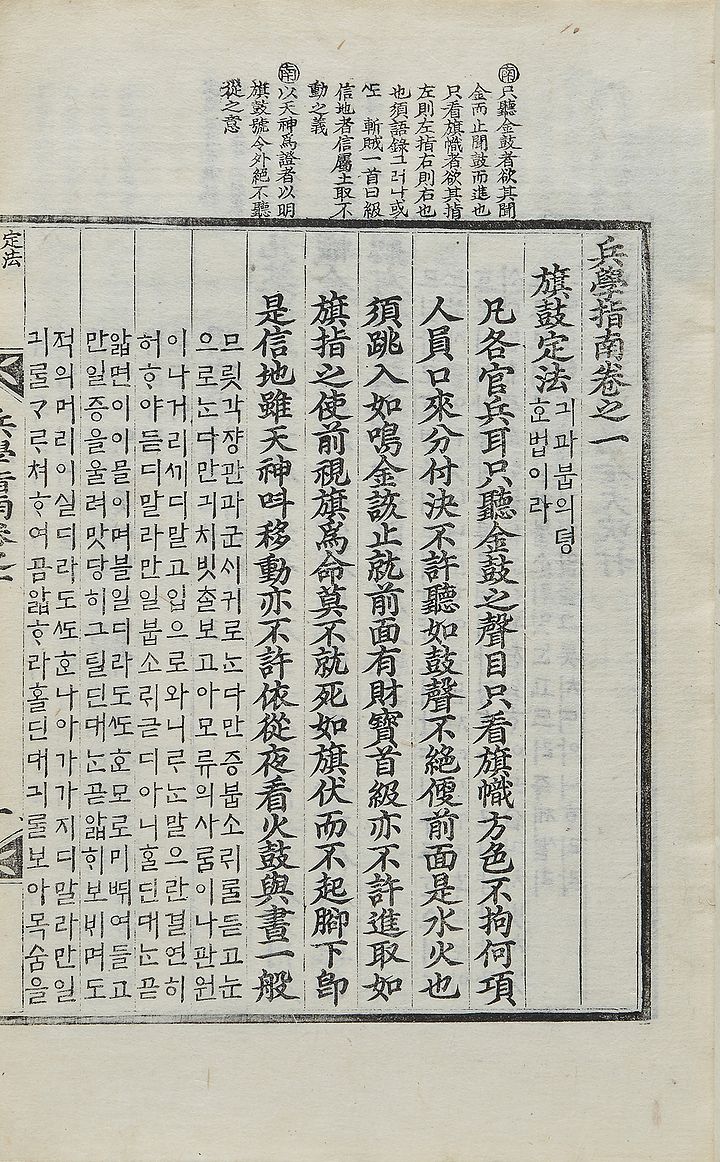 南只聽金鼓者欲其聞
金而止聞鼓而進也
只看旗幟者欲其指
左則左指右則右也
也須語錄그러나或
ᄯᅩ 斬賊一首曰級
信地者信屬土取不
動之義
南以天神爲證者以明
旗鼓號令外絶不聽
從之意
兵學指南卷之一
旗鼓定法
긔과붑의뎡
ᄒᆞᆫ법이라
凡各官兵耳只聽金鼓之聲目只看旗幟方色不拘何項
人員口來分付決不許聽如鼓聲不絶便前面是水火也
須跳入如鳴金該止就前面有財寶首級亦不許進取如
旗指之使前視旗爲命莫不就死如旗伏而不起腳下卽
是信地雖天神呌移動亦不許依從夜看火鼓與晝一般
므릇각쟝관과군시귀로ᄂᆞᆫ다만증붑소ᄅᆡᄅᆞᆯ듣고눈
으로ᄂᆞᆫ다만긔치빗ᄎᆞᆯ보고아모류의사ᄅᆞᆷ이나판원
이나거리ᄭᅵ디말고입으로와니ᄅᆞᄂᆞᆫ말으란결연히
허ᄒᆞ야듣디말라만일붑소ᄅᆡ귿디아니ᄒᆞᆯ딘대ᄂᆞᆫ곧
앏면이이믈이며블일디라도ᄯᅩᄒᆞᆫ모로미ᄠᅱ여들고
만일증을울려맛당히그틸딘대ᄂᆞᆫ곧앏ᄒᆡ보ᄇᆡ며도
적의머리이실디라도ᄯᅩᄒᆞᆫ나아가가지디말라만일
긔ᄅᆞᆯᄀᆞᄅᆞ쳐ᄒᆞ여곰앏ᄒᆞ라ᄒᆞᆯ딘대긔ᄅᆞᆯ보아목숨을
定法
兵學指南卷之一